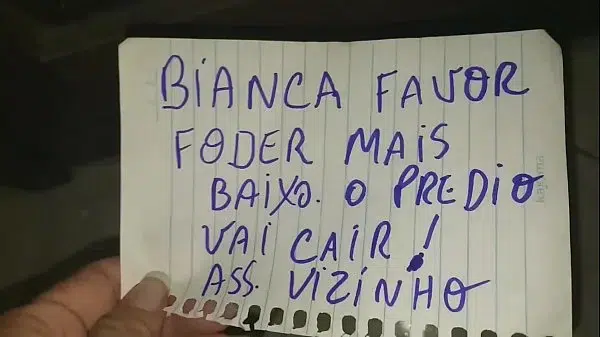 BIANCA FAVOR
FODER MAIS
BAIXO. O PREDIO
VAI CAIR!
ASS. VIZINHO